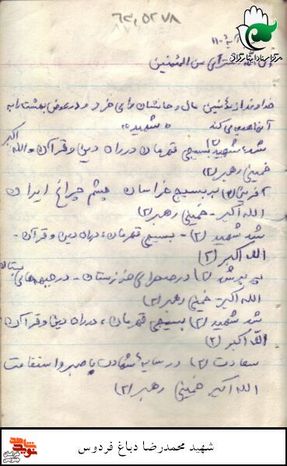 ۶۲,۵۲۷۸
ان الله اشتری من المؤمنین
خداوند از مؤمنین مال و جانشان را می خرد و در عوض بهشت را به
آن اهدا می کند «شهید»
شد شهید (۲) بسیجی قهرمان در راه دین و قرآن الله اکبر
خمینی رهبر (۲)
آفرین (۲) بر بسیج خراسان چشم چراغ ایران
الله اکبر - خمینی رهبر (۲)
شد شهید (۲) - بسیجی قهرمان - در راه دین و قرآن -
الله اکبر (۲)
(۲) در صحرای خوزستان - در جبهه های
الله اکبر - خمینی رهبر (۲)
شد شهید (۲) بسیجی قهرمان، در راه دین و قرآن
الله اکبر (۲)
سعادت (۲) در سایه شهادت با صبر و استقامت
الله اکبر خمینی رهبر (۲)
شهید محمدرضا دباغ فردوس